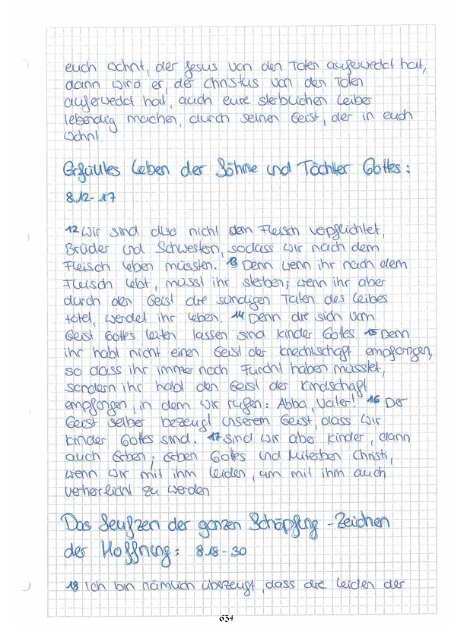 euch wohnt, der Jesus von den Toten auferweckt hat,
dann wird er, der Christus von den Toten
auferweckt hat, auch eure sterblichen Leiber
lebendig machen, durch seinen Geist, der in euch
wohnt.
Erfülltes Leben der Söhne und Töchter Gottes:
8.12-17
12 Wir sind also nicht dem Fleisch verpflichtet,
Brüder und Schwestern, sodass wir nach dem
Fleisch leben müssten. 13 Denn wenn ihr nach dem
Fleisch lebt, müsst ihr sterben; wenn ihr aber
durch den Geist die sündigen Taten des Leibes
tötet, werdet ihr leben. 14 Denn die sich vom
Geist Gottes leiten lassen sind Kinder Gottes 15 Denn
ihr habt nicht einen Geist der Knechtschaft empfangen,
so dass ihr immer noch Furcht haben müsstet,
sondern ihr habt den Geist der Kindschaft
empfangen, in dem wir rufen: Abba, Vater! 16 Der
Geist selber bezeugt unserem Geist, dass wir
Kinder Gottes sind. 17 Sind wir aber Kinder, dann
auch Erben; Erben Gottes und Miterben Christi,
wenn wir mit ihm leiden, um mit ihm auch
verherrlicht zu werden
Das Seufzen der ganzen Schöpfung - Zeichen
der Hoffnung: 8.18-30
18 Ich bin nämlich überzeugt, dass die Leiden der
634